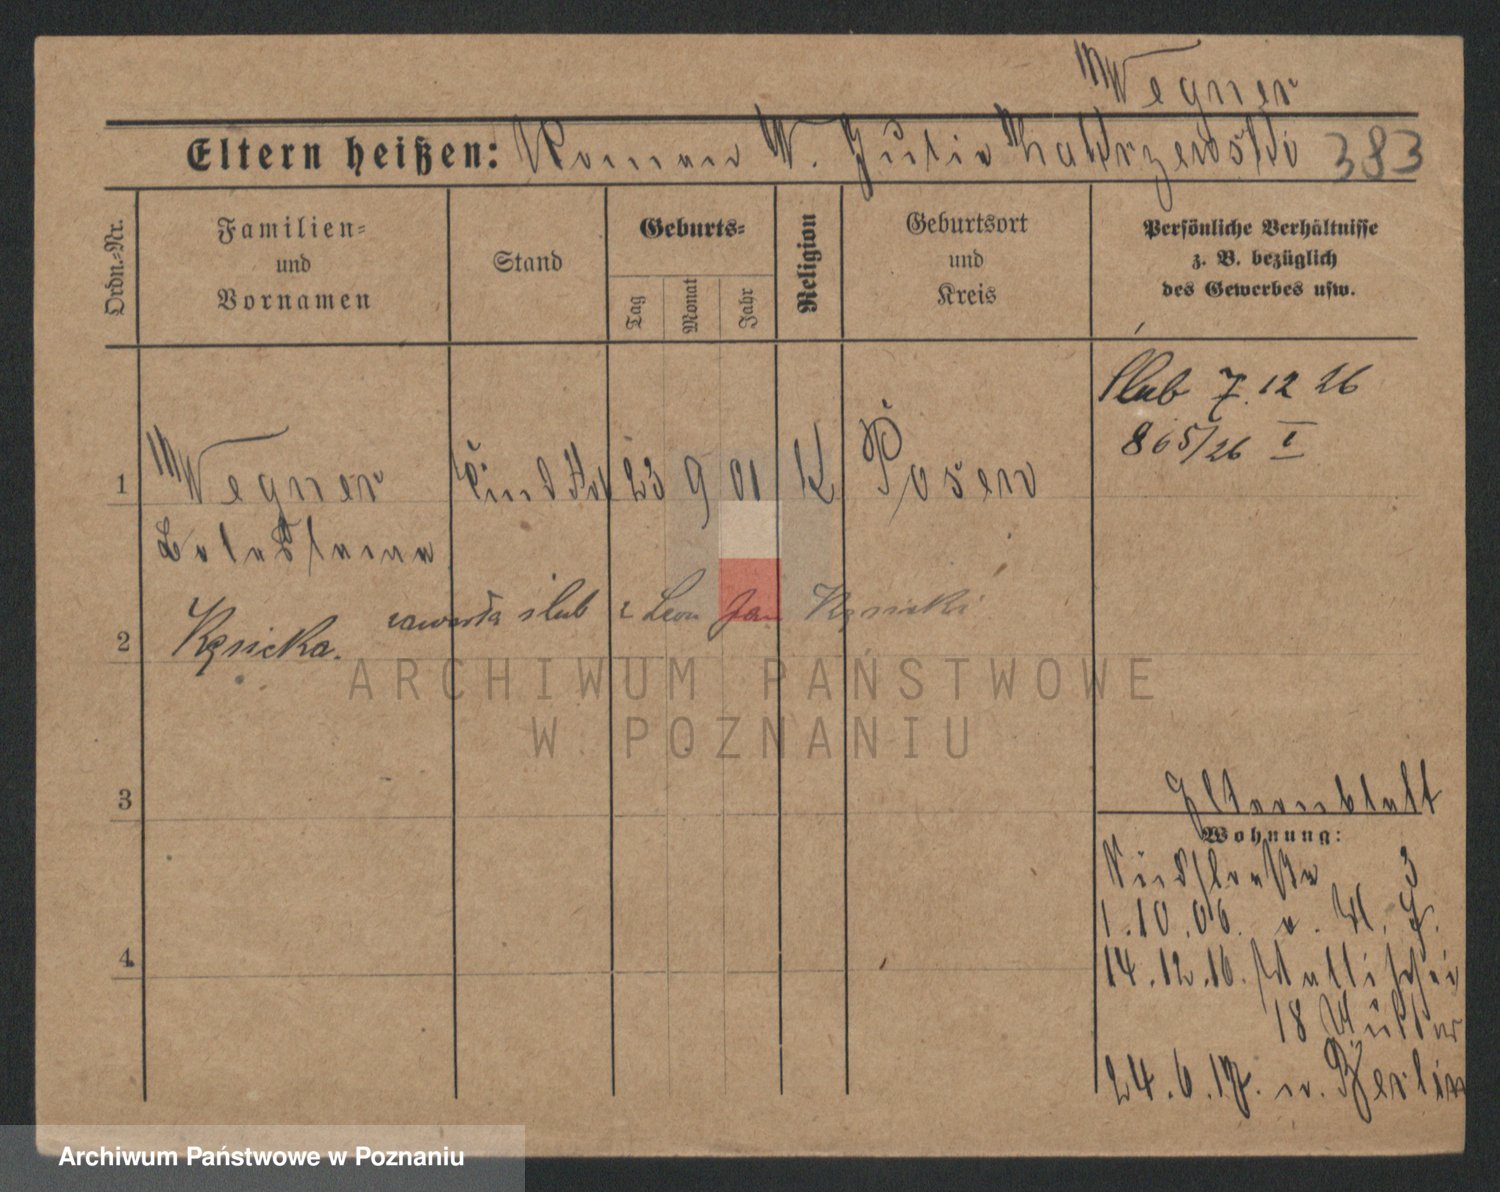 Wegner
Eltern heißen: Roman W. Julia Zakrzewski 383
Ordn.-Nr.
Familien-
und
Vornamen
Stand
Geburts-
Tag
Monat
Jahr
Religion
Geburtsort
und
Kreis
Persönliche Verhältnisse
z. B. bezüglich
des Gewerbes usw.
Ślub 7.12 26
865/26 I
1 Wegner 23 9 01 K Posen
Boleslawa
zawarła ślub z Leon Jan Kęsicki
2 Kęsicka.
3
4
Elternblatt
Wohnung:
3
1.10.06.
14.12.16. Wallischei
18 Mutter
24.6.17. n. Berlin
ARCHIWUM PAŃSTWOWE
W POZNANIU
Archiwum Państwowe w Poznaniu